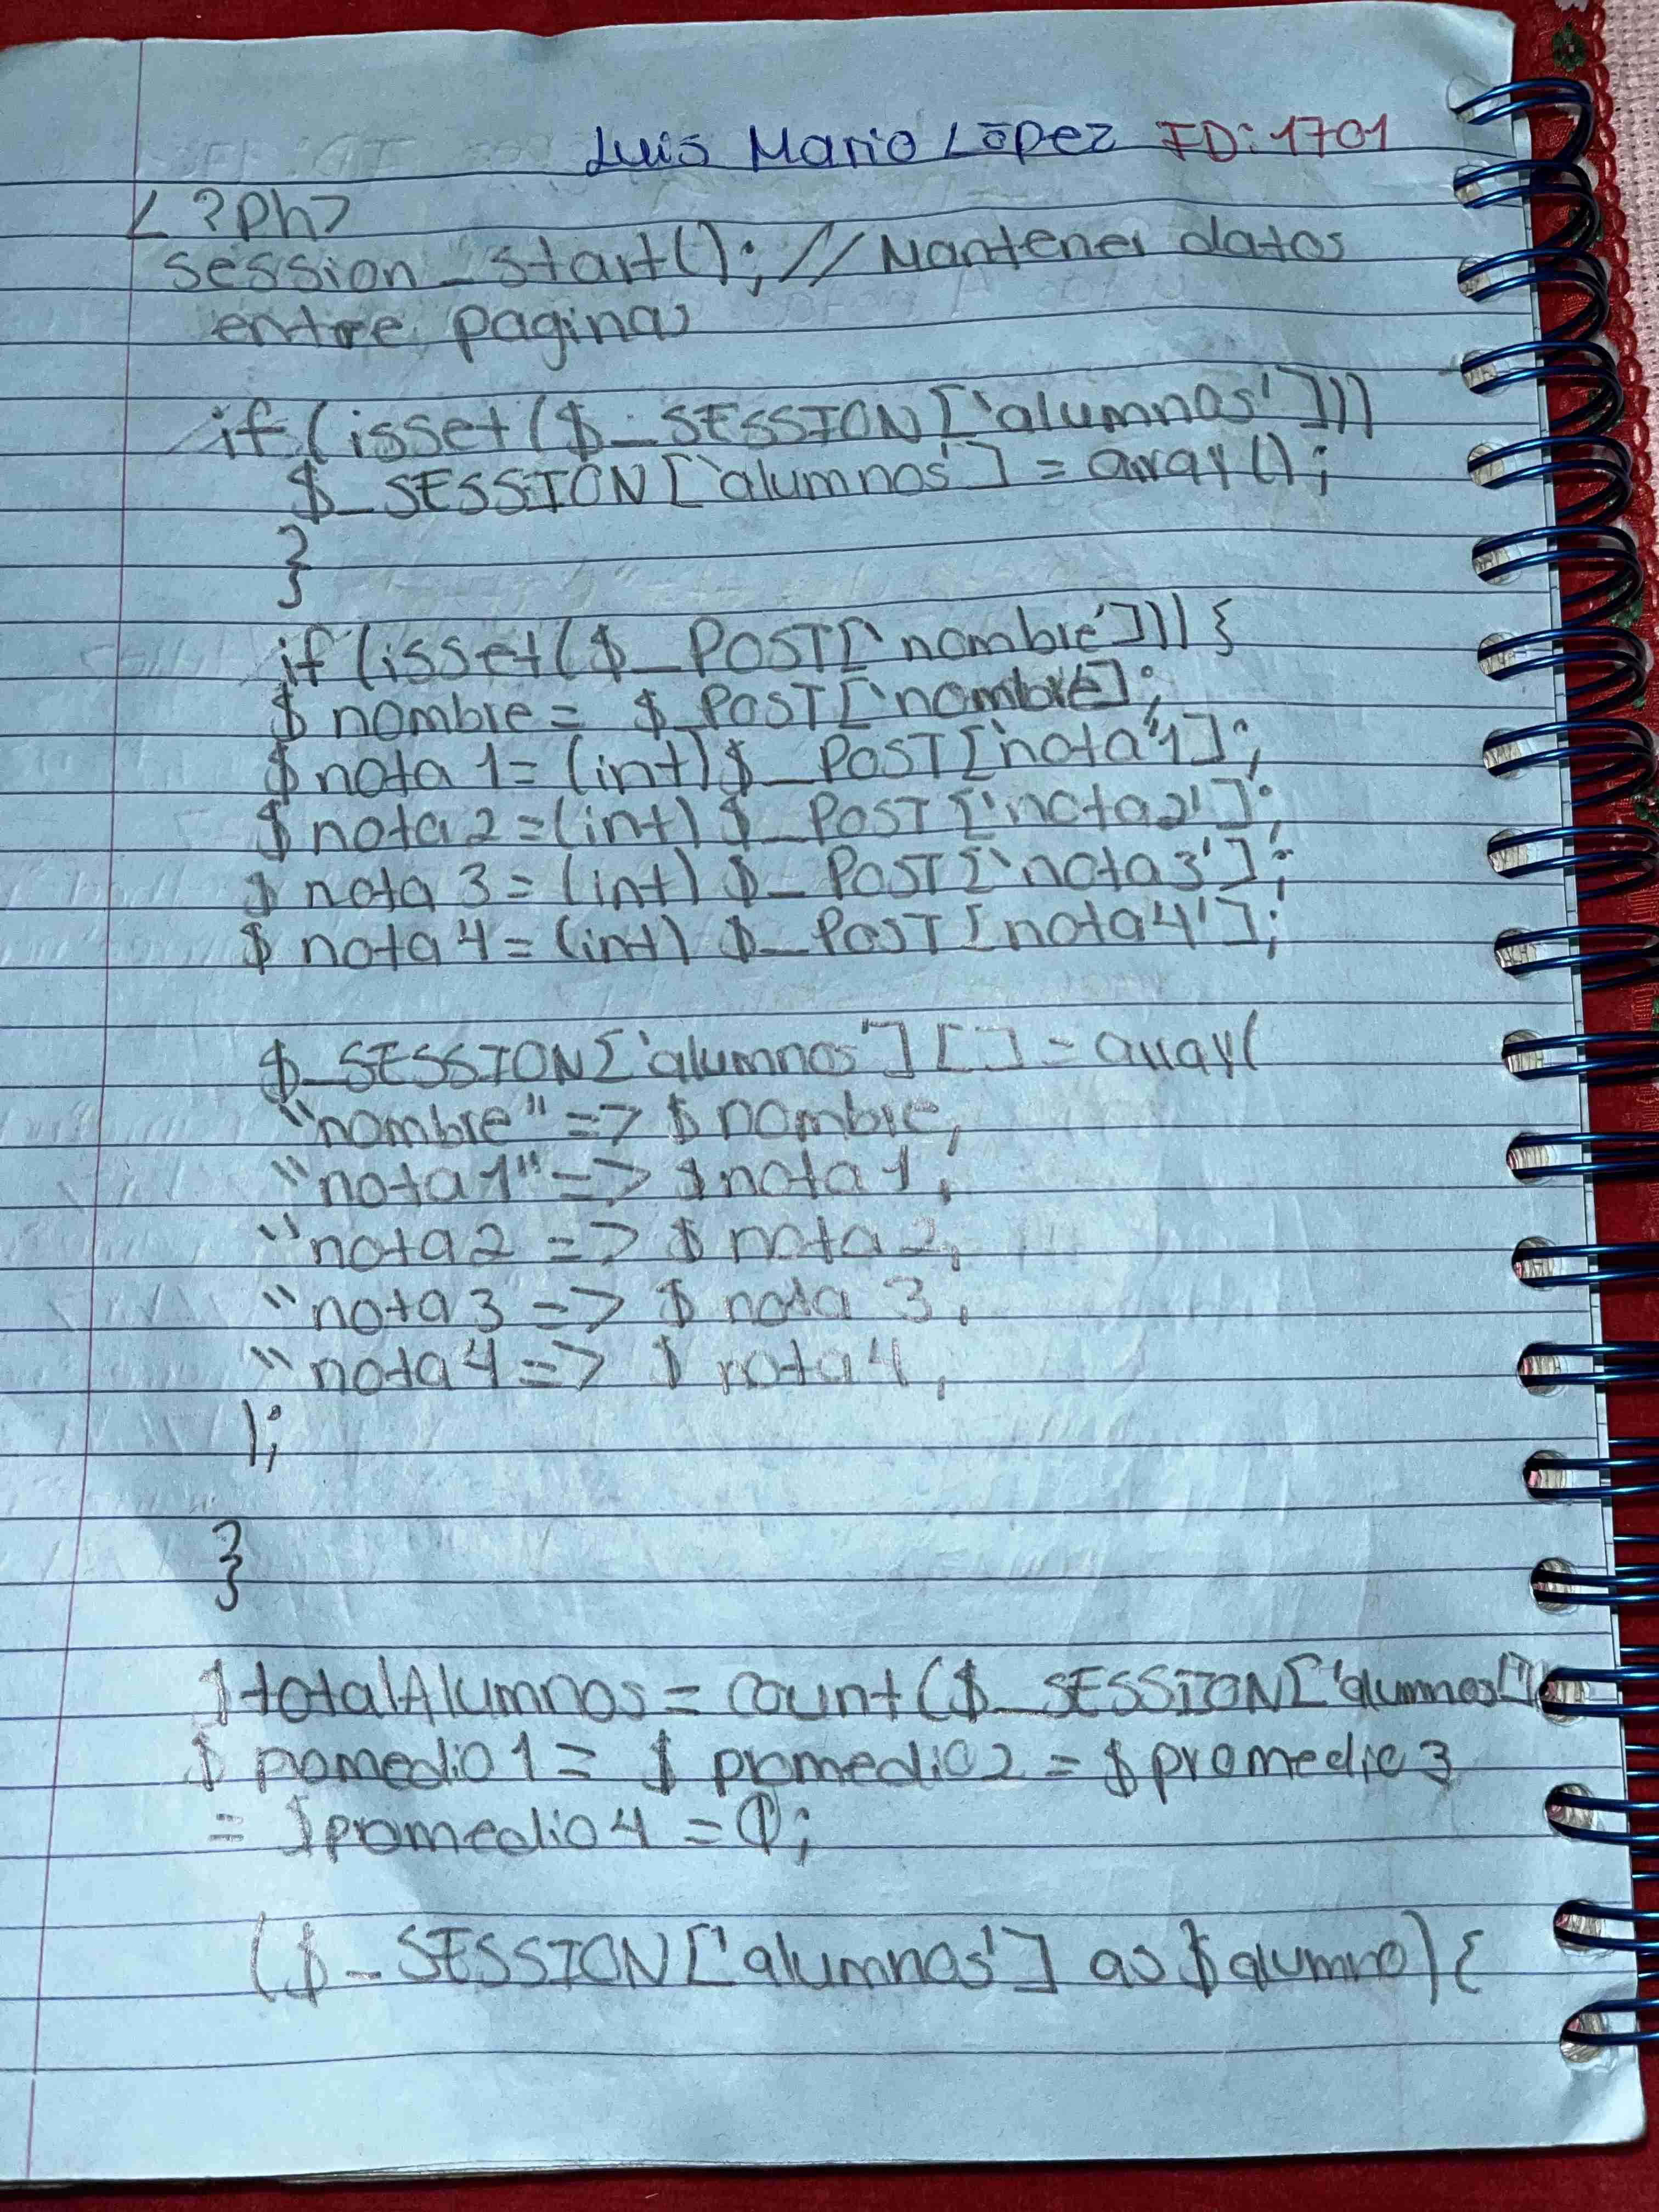 Luis Mario López ID:1701
<?ph>
session_start(); // Mantener datos
entre paginas
if (isset($_SESSION['alumnos']))
$_SESSION['alumnos'] = array();
}
if (isset($_POST['nombre'])) {
$ nombre = $_POST['nombre'];
$ nota 1 = (int) $_POST['nota'1];
$ nota 2 = (int) $_POST['nota2'];
$ nota 3 = (int) $_POST['nota3'];
$ nota 4 = (int) $_POST[nota4'];
$_SESSION['alumnos'][] = array(
"nombre" => $ nombre,
"nota1" => $nota 1,
"nota2 => $ nota 2,
"nota3 => $ nota 3,
"nota4 => $ nota 4,
);
}
$totalAlumnos = count($_SESSION['alumnos']
$ pomedio1 = $ promedio2 = $promedio3
= $promedio4 = 0;
($_SESSION['alumnos'] as $alumno) {